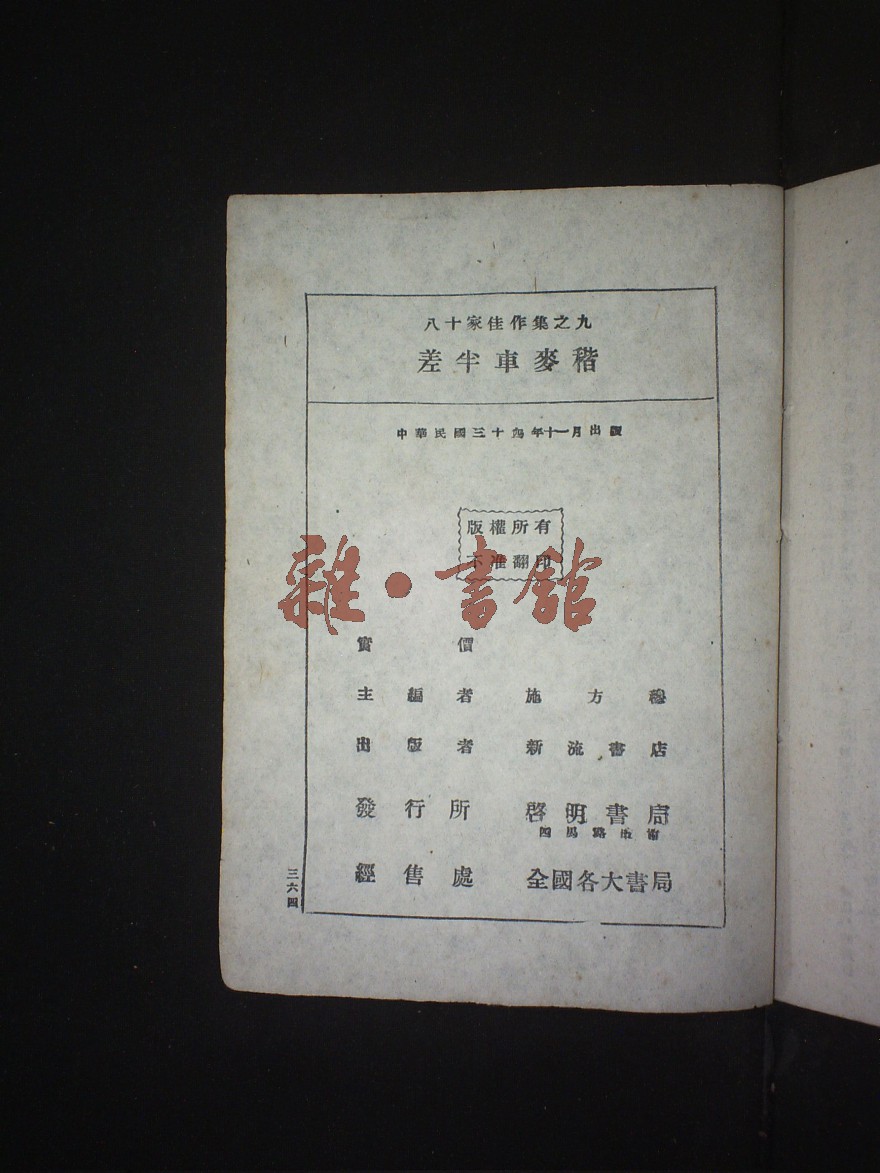 八十家佳作集之九
差半車麥稭
中華民國三十四年十一月出版
版權所有
不准翻印
雜·書館
實價
主編者 施方穆
出版者 新流書店
發行所 啓明書局
四馬路
經售處 全國各大書局
三六四